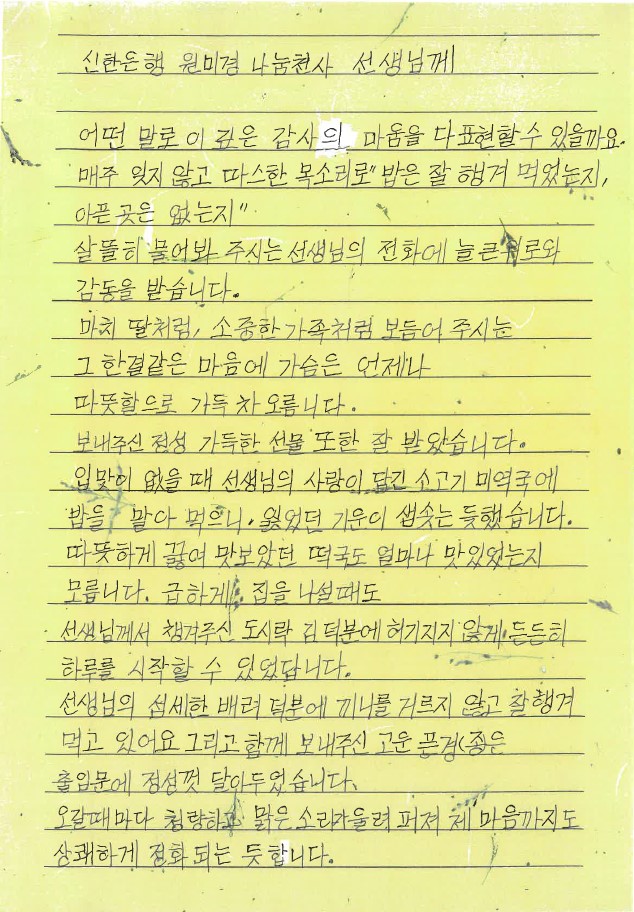 신한은행 원미경 나눔천사 선생님께
어떤 말로 이 깊은 감사의 마음을 다 표현할 수 있을까요.
매주 잊지 않고 따스한 목소리로 "밥은 잘 챙겨 먹었는지,
아픈 곳은 없는지"
살뜰히 물어봐 주시는 선생님의 전화에 늘 큰 위로와
감동을 받습니다.
마치 딸처럼, 소중한 가족처럼 보듬어 주시는
그 한결같은 마음에 가슴은 언제나
따뜻함으로 가득 차오릅니다.
보내주신 정성 가득한 선물 또한 잘 받았습니다.
입맛이 없을 때 선생님의 사랑이 담긴 소고기 미역국에
밥을 말아 먹으니, 잃었던 기운이 샘솟는 듯했습니다.
따뜻하게 끓여 맛보았던 떡국도 얼마나 맛있었는지
모릅니다. 급하게 집을 나설때도
선생님께서 챙겨주신 도시락 김 덕분에 허기지지 않게 든든히
하루를 시작할 수 있었답니다.
선생님의 섬세한 배려 덕분에 끼니를 거르지 않고 잘 챙겨
먹고 있어요 그리고 함께 보내주신 고운 풍경(종은
출입문에 정성껏 달아두었습니다.
오갈때마다 청랑하고 맑은 소리가 울려 퍼져 제 마음까지도
상쾌하게 정화되는 듯합니다.